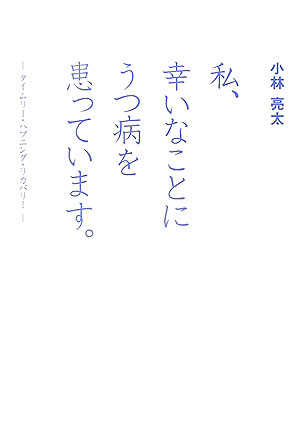 小林 亮太
私、
幸いなことに
うつ病を
患っています。
―タイムリー・ハプニング・リカバリー―